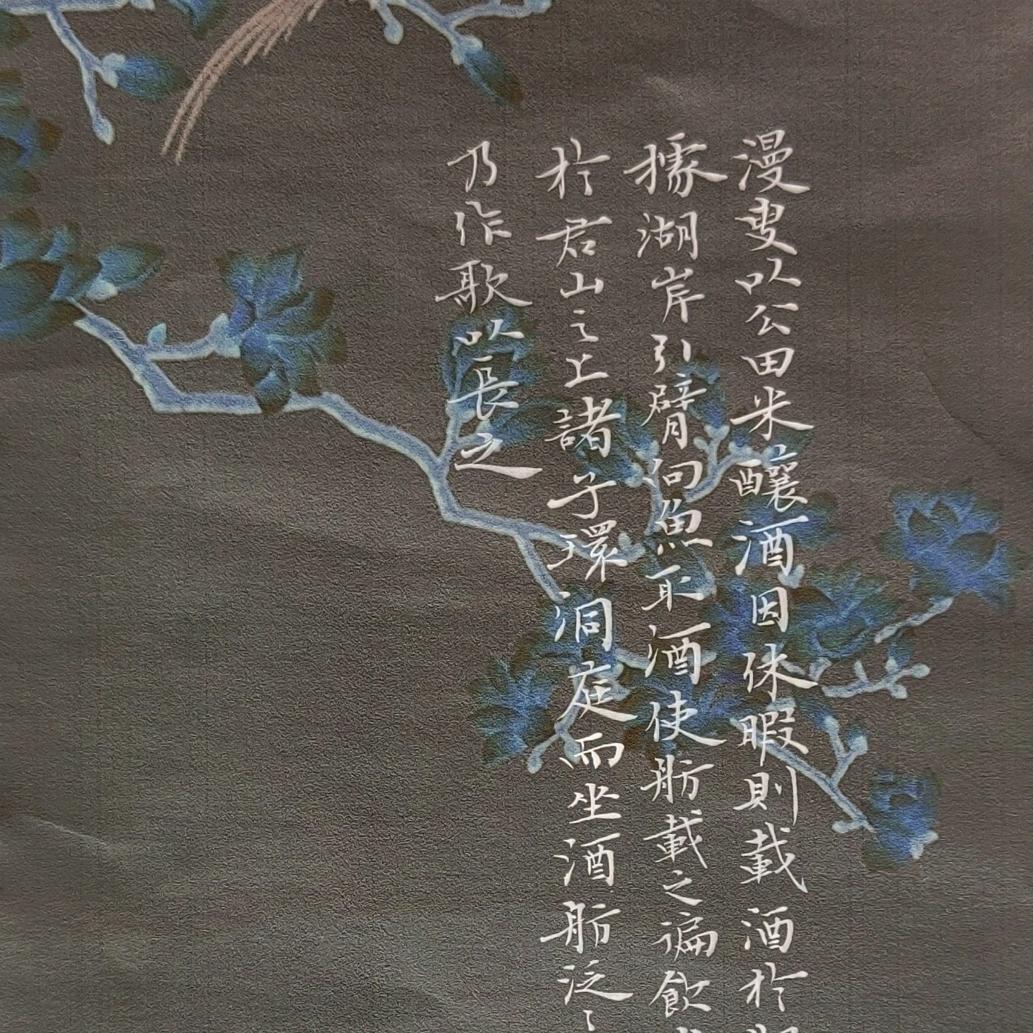 漫叟以公田米釀酒因休暇則載酒於
據湖岸引臂向魚取酒使舫載之遍飲
於君山之上諸子環洞庭而坐酒舫泛〻
乃作歌以長之